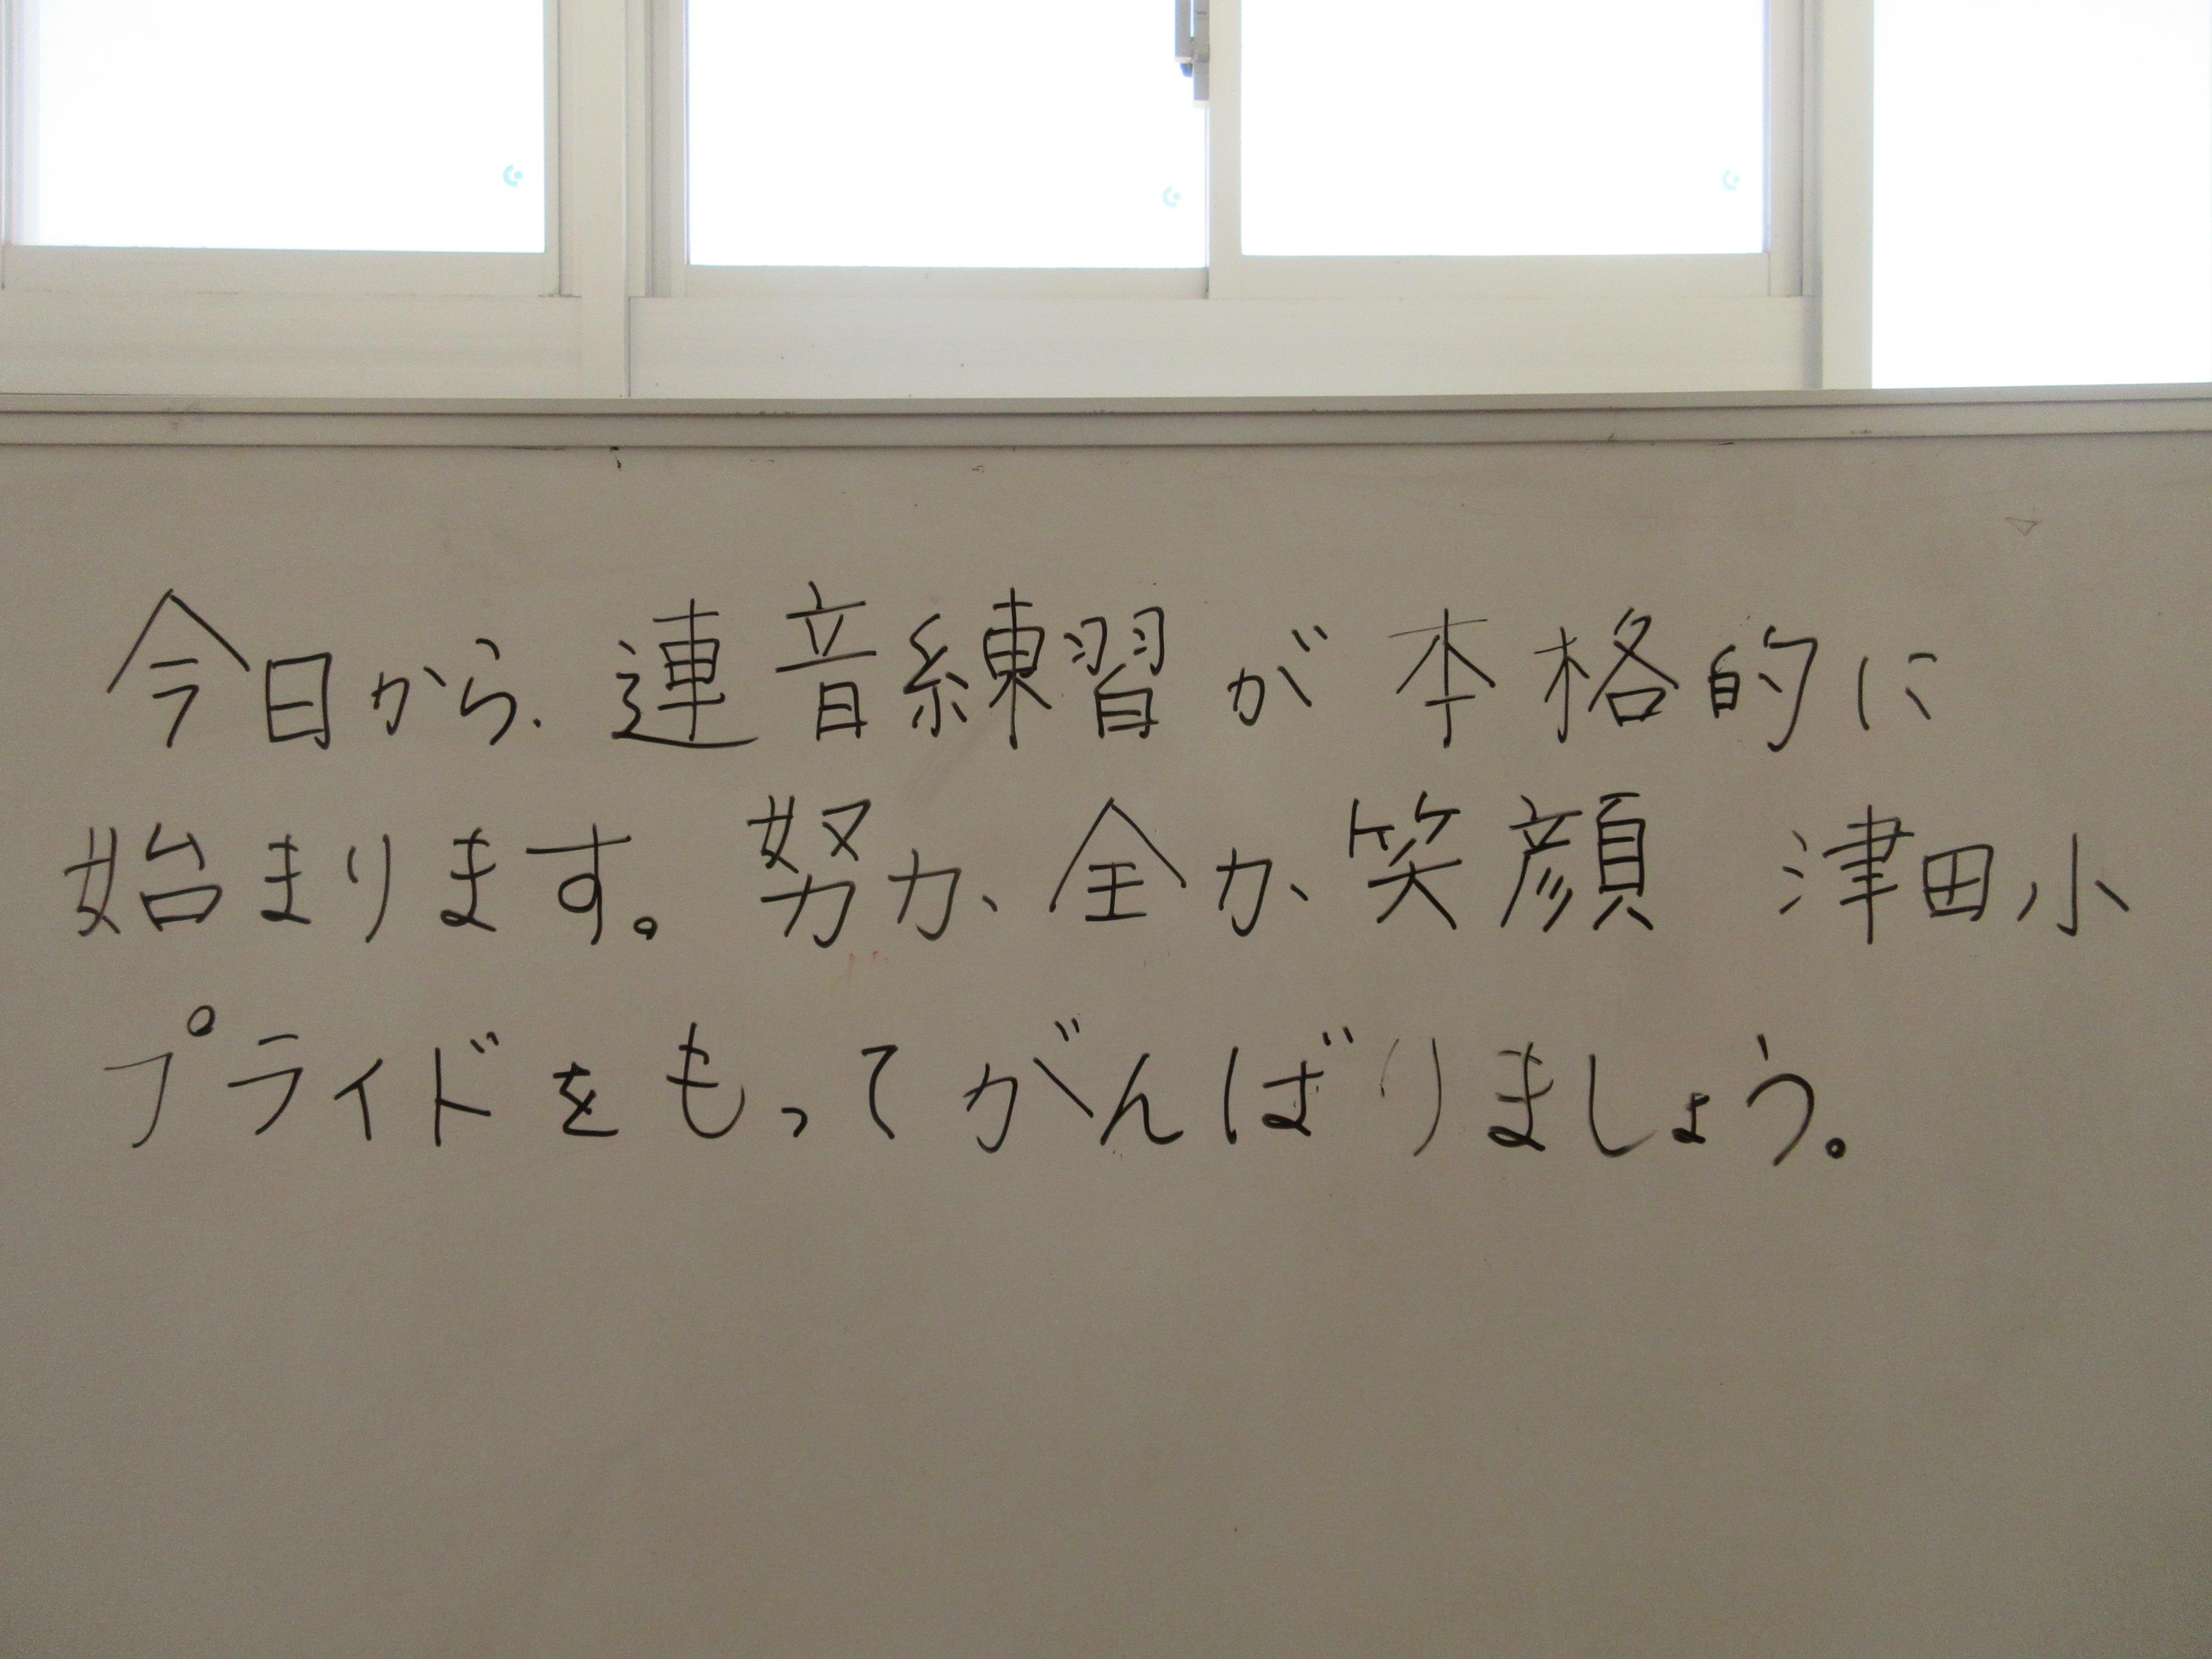 今日から、連音練習が本格的に
始まります。努力、全力、笑顔 津田小
プライドをもってがんばりましょう。